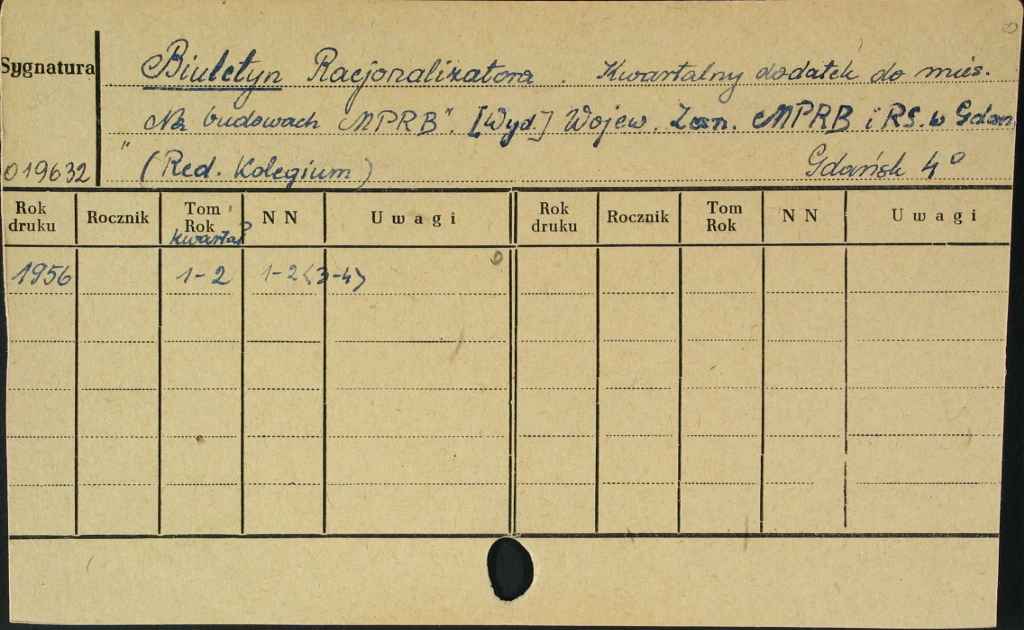 Sygnatura
Biuletyn Racjonalizatora. Kwartalny dodatek do mies.
„Na budowach MPRB". [Wyd.] Wojew. Zesp. MPRB i RS. w Gdań.
019632
(Red. Kolegium) Gdańsk 4°
Rok druku Rocznik Tom Rok Kwartał NN Uwagi Rok druku Rocznik Tom Rok NN Uwagi
1956 1-2 1-2<3-4>